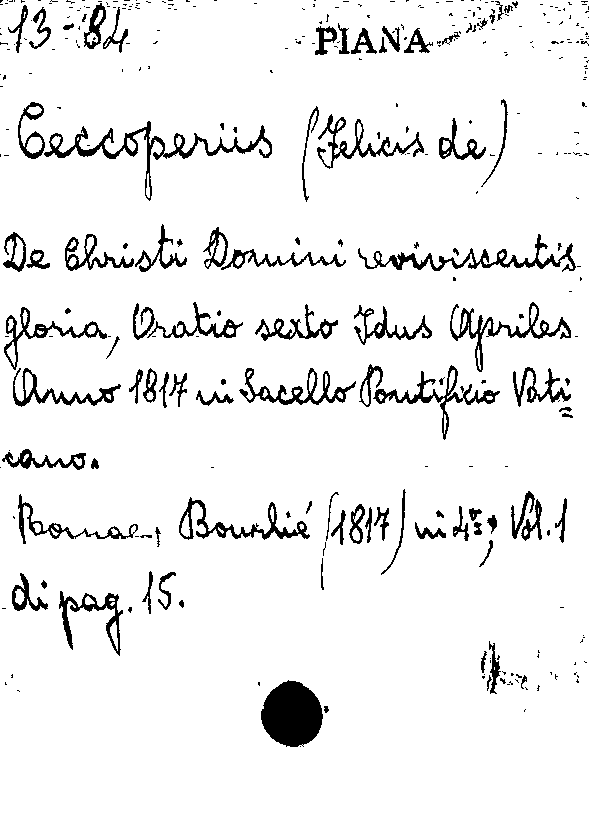 13-84 PIANA
Ceccoperius (Felicis de)
De Christi Domini reviviscentis
gloria, Oratio sexto Idus Apriles
Anno 1817 in Sacello Pontificio Vati=
cano.
Romae, Bourlié (1817) in 4º; Vol. 1
di pag. 15.